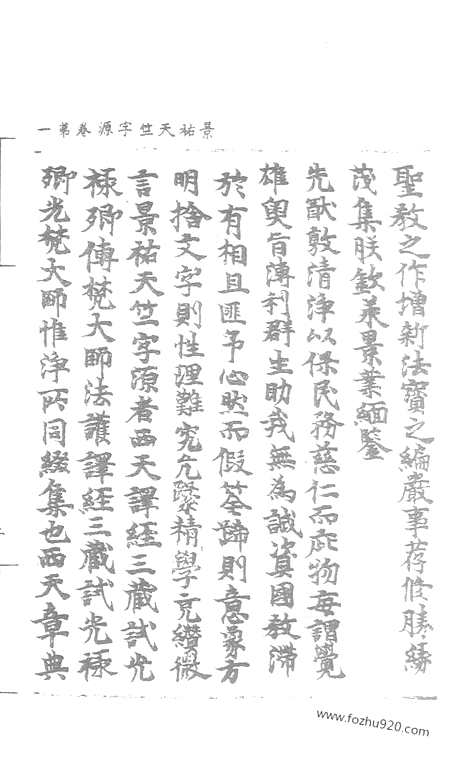 景祐天竺字源卷第一
聖教之作增新法寶之編嚴事荐修勝緣
茂集朕欽承景業緬鑒
先猷敦清淨以保民務慈仁而庇物每謂覺
雄奧旨溥利群生助我無為誠資國教滯
於有相且匪予心然而假筌蹄則意象方
明捨文字則性理難究允繄精學克纘微
言景祐天竺字源者西天譯經三藏試光
祿卿傳梵大師法護譯經三藏試光祿
卿光梵大師惟淨所同綴集也西天章典
www.fozhu920.com